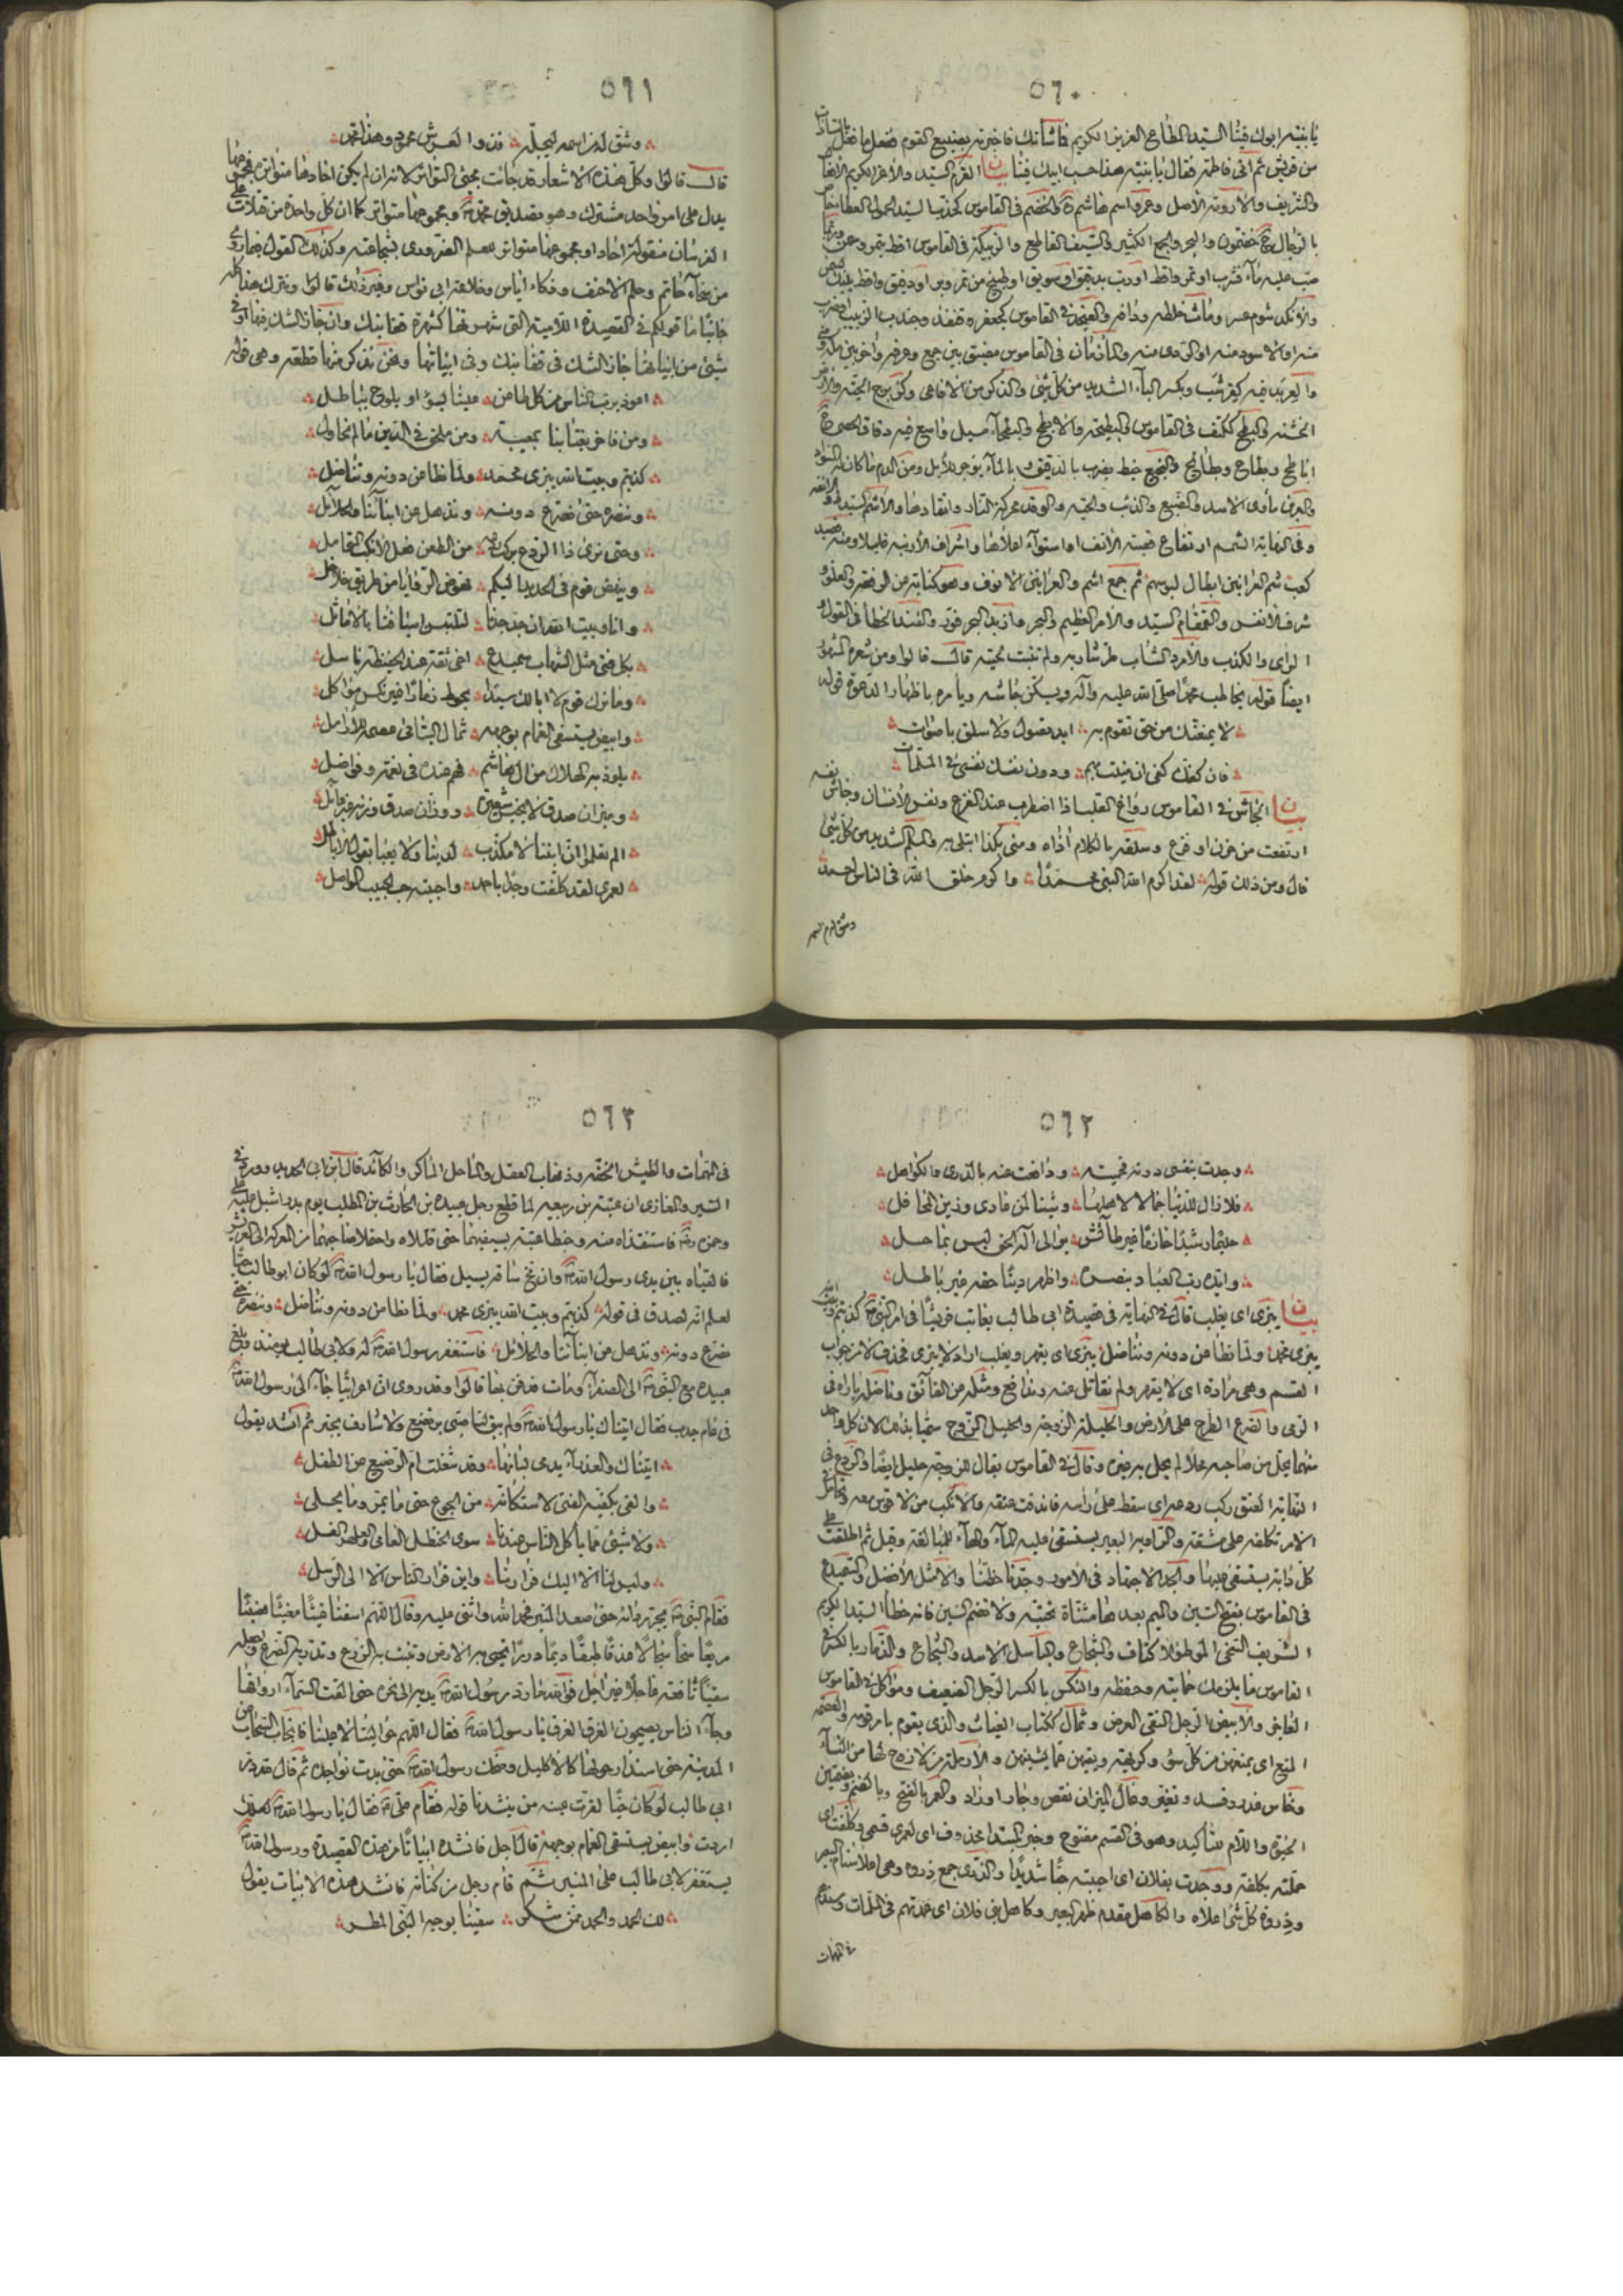 ٥٦٠
يا بنيه ابوك فينا السيد المطاع العزيز الكريم فما شأنك فاخبرته بصنيع القوم ففعل ما فعل بالسادات
من قريش ثم اتى فاطمة فقال يا بنيه هذا حسب ابيك فينا بيان القرم السيد والاعز الكريم
والشريف والارومة الاصل وعمرو اسم هاشم والخضم في القاموس السيد الحمول المعطاء
بالرجال خضمون والبحر والجمع الكثير والسيف القاطع والربيكة في القاموس اقط بتمر وسمن
صب عليه ماء فشرب او تمر واقط او رب بدقيق او سويق او طبيخ من تمر وبر او دقيق واقط
والانكد شوم عسر وماث خلطه في القاموس كجعفر قنفذ وجندب الزبيب او ضرب
منه او الاسود منه او الردى منه والمأزمان في القاموس مضيق بين جمع وعرفة واخر بين مكة ومنى
والعربد فيه كقرشب وبكسر الباء الشديد من كل شئ والذكر من الافاعي
والبطح ككتف في القاموس والبطيحة والابطح والبطحاء مسيل واسع فيه دقاق الحصى
اباطح وبطاح وبطائح والنجيع خبط يضرب بالدقيق وبالماء يوجر الابل ومن الدم ما كان الى السواد
والعرين مأوى الاسد والضبع والذئب والحية والوقد محركة النار واتقادها والاشم السيد ذو الانفة
وفي النهاية الشمم ارتفاع قصبة الانف واستواء اعلاها واشراف الارنبة قليلا ومنه قصيد
كعب شم العرانين ابطال لبوسهم شم جمع اشم والعرانين الانوف وهو كناية عن الرفعة والعلو
شرف الانفس والقمقام السيد والامر العظيم والبحر وازبد البحر فوق والفند الخطأ في القول و
الراى والكذب والامرد الشاب طر شاربه ولم تنبت لحيته قال قالوا ومن شعره المشهور
ايضا قوله يخاطب محمدا صلى الله عليه وآله ويسكن جاشه ويامره باظهار الدعوة قوله
لا يمنعنك من حق تقوم به ايد تصول ولا سلق باصوات
فان كفك كفى ان منيت بهم ودون نفسك نفسى في الملمات
بيان الجاش في القاموس رواع القلب اذا اضطرب عند الفزع ونفس الانسان وجاش نفسه
ارتفعت من حزن او فزع وسلقه بالكلام آذاه ومنى بكذا ابتلى به والملم الشديد من كل شئ
قال ومن ذلك قوله لقد اكرم الله النبى محمدا واكرم خلق الله في الناس احمد
وشق له من اسمه
٥٦١
وشق له من اسمه ليجله فذو العرش محمود وهذا محمد
قال قالوا وكل هذه الاشعار قد جائت مجئ التواتر لانه ان لم يكن احادها متواترة فمجموعها
يدل على امر واحد مشترك وهو تصديق محمد ومجموعها متواتر كما ان كل واحدة من قتلات
الفرسان منقولة احادا ومجموعها متواتر للعلم الضرورى بشجاعته وكذلك القول فيما روى
من سخاء حاتم وحلم الاحنف وذكاء اياس وخلاعة ابي نواس وغير ذلك قالوا ونترك هذا كله
جانبا ما قولكم في القصيدة اللامية التى شهرتها كشهرة قفا نبك وان جاز الشك فيها او في
شئ من ابياتها جاز الشك في قفا نبك وفي ابياتها ونحن نذكر منها قطعة وهى قوله
اعوذ برب الناس من كل طاعن علينا بسوء او يلوح بباطل
ومن فاجر يغتابنا بمعيبة ومن ملحق في الدين ما لم نحاول
كذبتم وبيت الله يبزى محمد ولما نطاعن دونه ونناضل
وننصره حتى نصرع دونه ونذهل عن ابنائنا والحلائل
وحتى نرى ذا الردع يركب ردعه من الطعن فعل الانكب المتحامل
وينهض قوم في الحديد اليكم نهوض الروايا من طريق جلاجل
وانا وبيت الله ان جد جدنا لتلتبسن اسيافنا بالاماثل
بكل فتى مثل الشهاب سميدع اخى ثقة عند الحفيظة باسل
وما ترك قوم لا ابا لك سيدا يحوط ذمارا غير نكس مواكل
وابيض يستسقى الغمام بوجهه ثمال اليتامى عصمة للارامل
يلوذ به الهلاك من آل هاشم فهم عنده في نعمة وفواضل
وميزان صدق لا يخيس شعيرة ووزان صدق وزنه غير عائل
الم تعلموا ان ابننا لا مكذب لدينا ولا يعبا بقول الاباطل
لعمرى لقد كلفت وجدا باحمد واحببته حب الحبيب المواصل
٥٦٢
وجدت بنفسى دونه فحميته ودافعت عنه بالذرى والكواهل
فلا زال للدنيا جمالا لاهلها وشينا لمن عادى وزين المحافل
حليما رشيدا حازما غير طائش يوالى آله الحق ليس بماحل
وايده رب العباد بنصره واظهر دينا حقه غير باطل
بيان يبزى اى يغلب قال في النهاية في قصيدة ابي طالب يعاتب قريشا في امر النبى كذبتم وبيت الله
يبزى محمد ولما نطاعن دونه ونناضل يبزى اى يقهر ويغلب اراد لا يبزى فحذف لا من جواب
القسم وهى مرادة اى لا يقهر ولم نقاتل عنه وندافع ومثله من الفائق وناضله باراه في
الرمى والصرع الطرح على الارض والحليلة الزوجة والحليل الزوج سميا بذلك لان كل واحد
منهما يحل من صاحبه محلا لم يحل به غيره وقال في القاموس يقال للزوجة حليل ايضا والردع في
النهاية العنق ركب ردعه اى سقط على رأسه فاندقت عنقه والانكب من لا قوس معه وتحامل في
الامر تكلفه على مشقة والراوية البعير يستسقى عليه الماء والهاء للمبالغة وقيل ثم اطلقت على
كل دابة يستقى عليها والجد الاجتهاد في الامور وجدنا حظنا والامثل الافضل والسميدع
في القاموس بفتح السين والميم بعدها مثناة تحتية ولا تضم السين فانه خطأ السيد الكريم
الشريف السخى الموطؤ الاكناف والشجاع والباسل الاسد والشجاع والذمار بالكسر في
القاموس ما يلزمك حمايته وحفظه والنكس بالكسر الرجل الضعيف ومواكل في القاموس
العاجز والابيض الرجل النقى العرض وثمال ككتاب الغياث والذى يقوم بامر قومه والعصمة
المنع اى يمنعهن من كل سوء وكريهة ويقيهن مما يشينهن والارملة من لا زوج لها من النساء
وخاس غدر وفسد وتغير وعال الميزان نقص وجار او زاد والعمر بالفتح وبالضم وبضمتين
الحيوة واللام للتأكيد وهو في القسم مفتوح وخبر المبتدا محذوف اى لعمرى قسمى وكلفت اى
حملته بكلفة ووجدت بفلان اى احببته حبا شديدا والذرى جمع ذروة وهى اعلا سنام البعير
وذروة كل شئ اعلاه والكاهل مقدم ظهر البعير وكاهل بنى فلان اى عمدتهم في الملمات وسندهم
في المهمات
٥٦٣
في المهمات والطيش الخفة وذهاب العقل والماحل الماكر والكائد قال ابن ابى الحديد وورد في
السير والمغازى ان عتبة بن ربيعة لما قطع رجل عبيدة بن الحارث بن المطلب يوم بدر اشبل عليه على
وحمزة فاستنقذاه منه وخبطا عتبة بسيفيهما حتى قتلاه واحتملا صاحبهما من المعركة الى العريش
فالقياه بين يدى رسول الله وان مخ ساقه يسيل فقال يا رسول الله لو كان ابو طالب حيا
لعلم انه لصدق في قوله كذبتم وبيت الله يبزى محمد ولما نطاعن دونه ونناضل وننصره حتى
نصرع دونه ونذهل عن ابنائنا والحلائل فاستغفر رسول الله له ولابى طالب يومئذ وبلغ
عبيدة مع النبى الى الصفراء ومات فدفن بها قالوا وقد روى ان اعرابيا جاء الى رسول الله
في عام جدب فقال اتيناك يا رسول الله ولم يبق لنا صبى يرضع ولا شارف يجتر ثم انشد يقول
اتيناك والعذراء يدمى لبانها وقد شغلت ام الرضيع عن الطفل
والقى بكفيه الفتى لاستكانة من الجوع حتى ما يمر وما يحلى
ولا شئ مما ياكل الناس عندنا سوى الحنظل العامى والعلهز الفسل
وليس لنا الا اليك فرارنا واين فرار الناس الا الى الرسل
فقام النبى يجر رداءه حتى صعد المنبر فحمد الله واثنى عليه وقال اللهم اسقنا غيثا مغيثا هنيئا
مريعا سحا سجالا غدقا طبقا ديما دررا تحيى به الارض وتنبت به الزرع وتدر به الضرع واجعله
سقيا نافعة عاجلا غير آجل فوالله ما رد رسول الله يديه الى نحره حتى القت السماء ارواقها
وجاء الناس يصيحون الغرق الغرق يا رسول الله فقال اللهم حوالينا ولا علينا فانجاب السحاب عن
المدينة حتى استدار حولها كالاكليل وضحك رسول الله حتى بدت نواجذه ثم قال لله در
ابى طالب لو كان حيا لقرت عينه من ينشدنا قوله فقام على فقال يا رسول الله لعلك
اردت وابيض يستسقى الغمام بوجهه قال اجل فانشده ابياتا من هذه القصيدة ورسول الله
يستغفر لابى طالب على المنبر ثم قام رجل من كنانة فانشد هذه الابيات يقول
لك الحمد والحمد ممن شكر سقينا بوجه النبى المطر